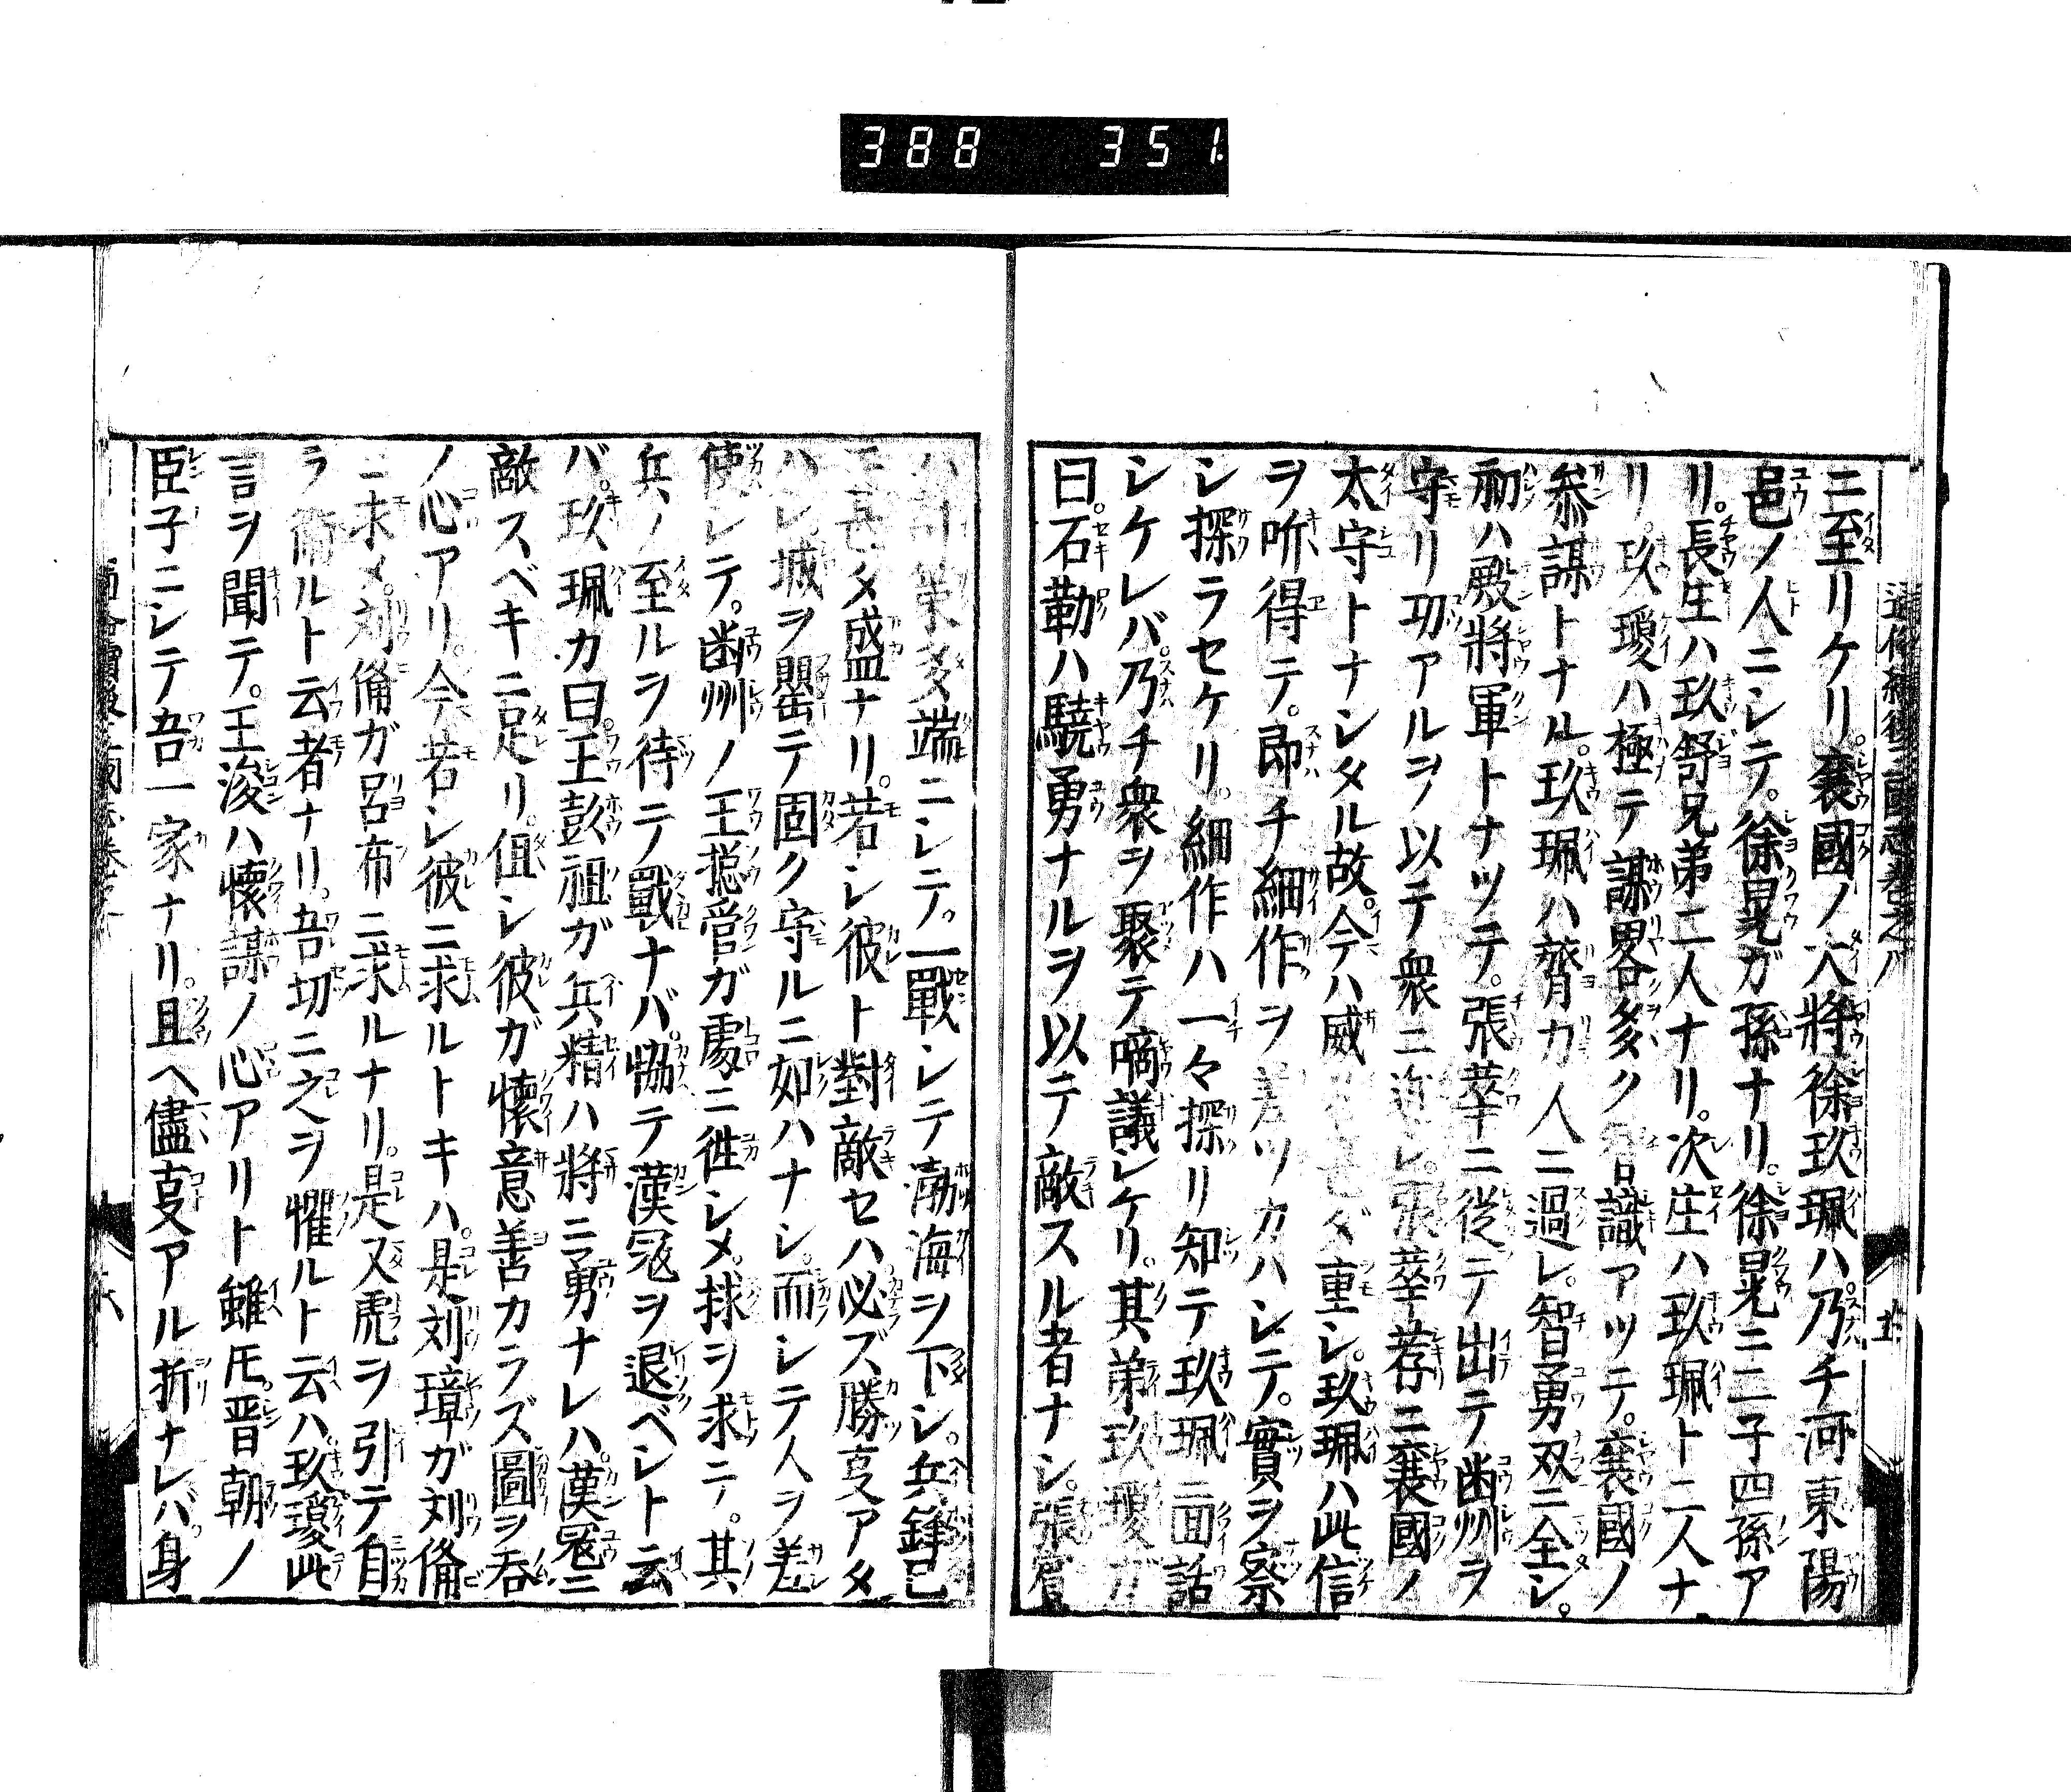 388 351
ニ至リケリ。襄國ノ大將徐玖珮ハ。乃チ河東陽
邑ノ人ニシテ。徐晃ガ孫ナリ。徐晃ニ二子四孫ア
リ。長生ハ玖舒兄弟二人ナリ。次庄ハ玖珮ト二人ナ
リ。玖瓊ハ極テ謀畧多ク智識アツテ。襄國ノ
叅謀トナル。玖珮ハ膂力人ニ過レ。智勇双ニ全シ。
初ハ殿將軍トナツテ。張莘ニ從テ出テ幽州ヲ
守リ功アルヲ以テ衆ニ 張莘荐ニ襄國ノ
太守トナシメル故。今ハ威 甚ダ重シ。玖珮ハ此信
ヲ听得テ。即チ細作ヲ差ツカハシテ。實ヲ察
シ探ラセケリ。細作ハ一々探リ知テ玖珮ニ面話
シケレバ。乃チ衆ヲ聚テ啇議シケリ。其弟玖瓊ガ
曰。石勒ハ驍勇ナルヲ以テ敵スル者ナシ。張賓
ハ計策多端ニシテ。一戰シテ渤海ヲ下シ。兵鋒已
ニ甚タ盛ナリ。若シ彼ト對敵セハ必ズ勝叓アタ
ハシ。城ヲ壘テ固ク守ルニ如ハナシ。而シテ人ヲ差
使シテ。幽州ノ王揔管ガ處ニ徃シメ。捄ヲ求ニテ。其
兵ノ至ルヲ待テ戰ナバ。恊テ漢冦ヲ退ベシト云
バ。玖珮カ曰。王彭祖ガ兵精ハ將ニ勇ナレハ。漢冦ニ
敵スベキニ足リ。伹シ彼ガ懷意善カラズ圖ヲ呑
ノ心アリ。今若シ彼ニ求ルトキハ。是刘璋ガ刘俻
ニ求メ。刘俻ガ呂布ニ求ルナリ。是又虎ヲ引テ自
ラ衞ルト云者ナリ。吾切ニ之ヲ懼ルト云ハ。玖瓊此
言ヲ聞テ。王浚ハ懷謀ノ心アリト雖モ。晋朝ノ
臣子ニシテ吾一家ナリ。且ヘ儘叓アル折ナレバ身